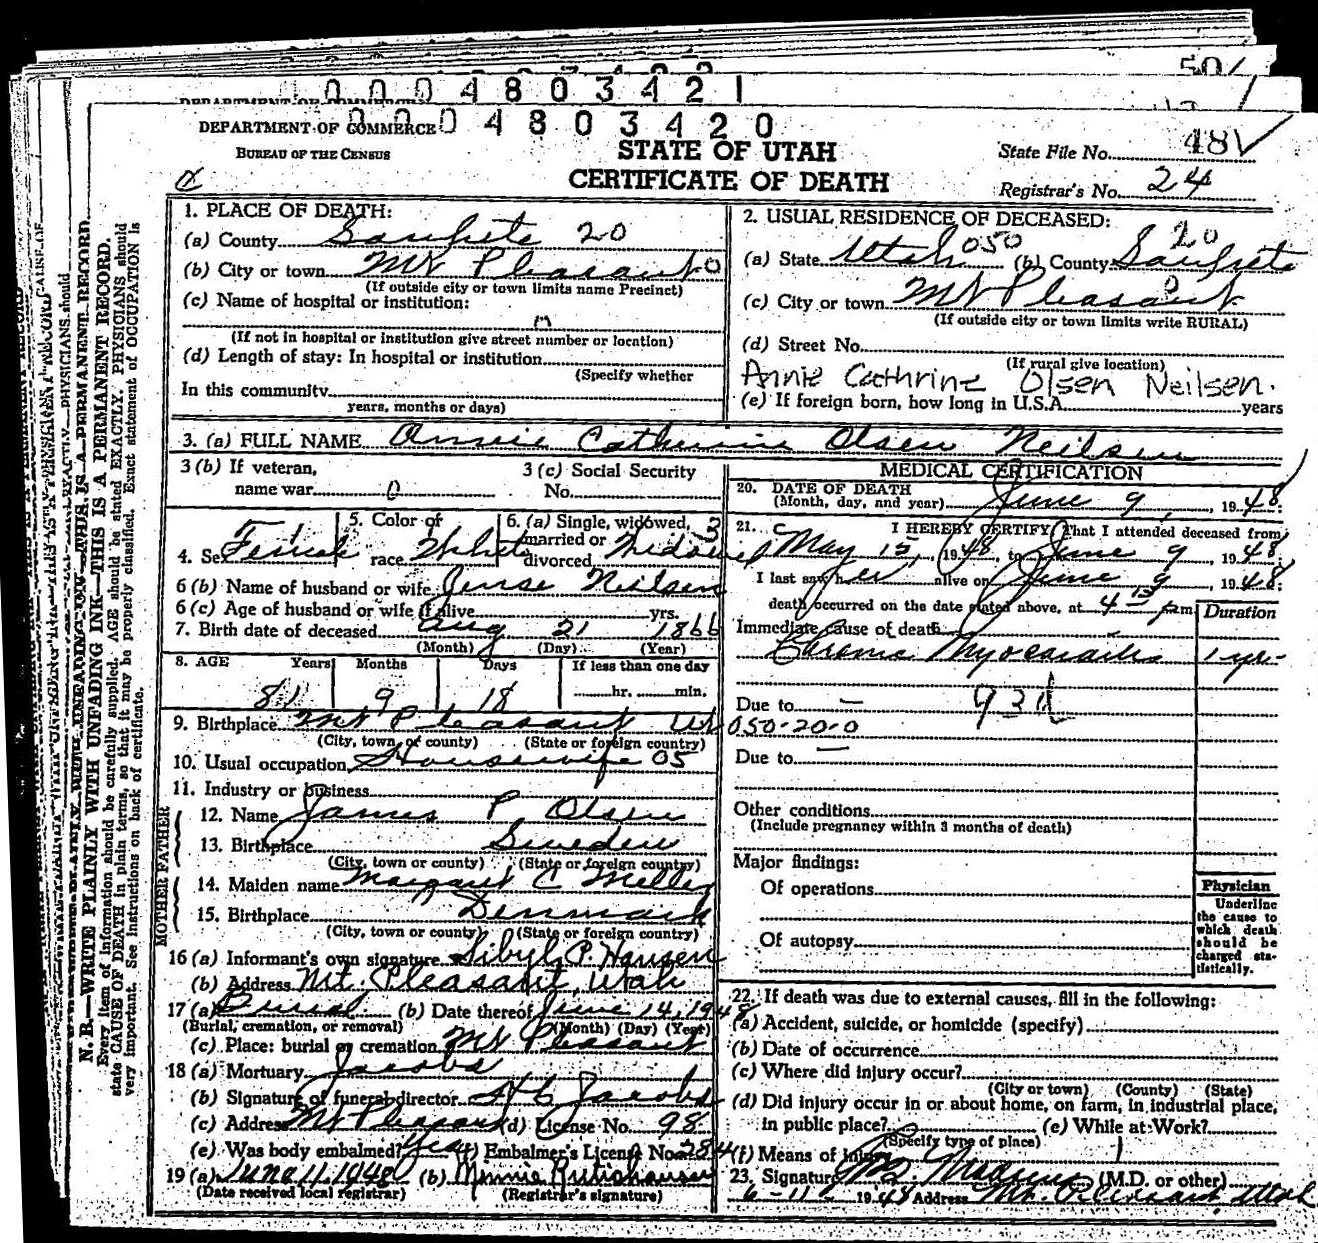 50/
0004803421
DEPARTMENT OF COMMERCE
0004803420
DEPARTMENT OF COMMERCE
BUREAU OF THE CENSUS
STATE OF UTAH
CERTIFICATE OF DEATH
State File No. 48
Registrar's No. 24
1. PLACE OF DEATH:
(a) County Sanpete 20
(b) City or town Mt Pleasant 0
(If outside city or town limits name Precinct)
(c) Name of hospital or institution:
(If not in hospital or institution give street number or location)
(d) Length of stay: In hospital or institution
(Specify whether
In this community
years, months or days)
2. USUAL RESIDENCE OF DECEASED:
(a) State Utah 050 (b) County Sanpete 20
(c) City or town Mt Pleasant 0
(If outside city or town limits write RURAL)
(d) Street No.
(If rural give location)
Annie Cathrine Olsen Neilsen.
(e) If foreign born, how long in U.S.A. years
3. (a) FULL NAME Annie Catherine Olsen Neilsen
3 (b) If veteran,
name war 0
3 (c) Social Security
No.
4. Sex Female
5. Color of
race White
6. (a) Single, widowed, 3
married or
divorced Widowed
6 (b) Name of husband or wife Jense Neilsen
6 (c) Age of husband or wife if alive yrs.
7. Birth date of deceased Aug 21 1866
(Month) (Day) (Year)
8. AGE Years Months Days If less than one day
81 9 18 hr. min.
9. Birthplace Mt Pleasant Ut 050-20-0
(City, town, or county) (State or foreign country)
10. Usual occupation Housewife 05
11. Industry or business
FATHER
12. Name James P Olsen
13. Birthplace Sweden
(City, town or county) (State or foreign country)
MOTHER
14. Maiden name Margaret C Meller
15. Birthplace Denmark
(City, town or county) (State or foreign country)
16 (a) Informant's own signature Sibyl P. Hansen
(b) Address Mt. Pleasant, Utah
17 (a) Burial (b) Date thereof June 14, 1948
(Burial, cremation, or removal) (Month) (Day) (Year)
(c) Place: burial or cremation Mt Pleasant
18 (a) Mortuary Jacobs
(b) Signature of funeral director H C Jacobs
(c) Address Mt Pleasant (d) License No. 98
(e) Was body embalmed? Yes (f) Embalmer's License No. 284
19 (a) June 11, 1948 (b) Minnie
(Date received local registrar) (Registrar's signature)
MEDICAL CERTIFICATION
20. DATE OF DEATH
(Month, day, and year) June 9, 1948:
21. I HEREBY CERTIFY, That I attended deceased from
May 15, 1948, to June 9, 1948,
I last saw her alive on June 9, 1948:
death occurred on the date stated above, at 4 15 p.m.
Duration
Immediate cause of death
Chronic Myocarditis 1 yr.
Due to — 93d
Due to —
Other conditions
(Include pregnancy within 3 months of death)
Major findings:
Of operations
Of autopsy
Physician
Underline
the cause to
which death
should be
charged sta-
tistically.
22. If death was due to external causes, fill in the following:
(a) Accident, suicide, or homicide (specify)
(b) Date of occurrence
(c) Where did injury occur?
(City or town) (County) (State)
(d) Did injury occur in or about home, on farm, in industrial place,
in public place? (e) While at Work?
(Specify type of place)
(f) Means of Injury
23. Signature (M.D. or other)
6-11- 1948 Address Mt. Pleasant, Utah
N. B.—WRITE PLAINLY WITH UNFADING INK—THIS IS A PERMANENT RECORD.
Every item of information should be carefully supplied. AGE should be stated EXACTLY. PHYSICIANS should
state CAUSE OF DEATH in plain terms, so that it may be properly classified. Exact statement of OCCUPATION is
very important. See instructions on back of certificate.